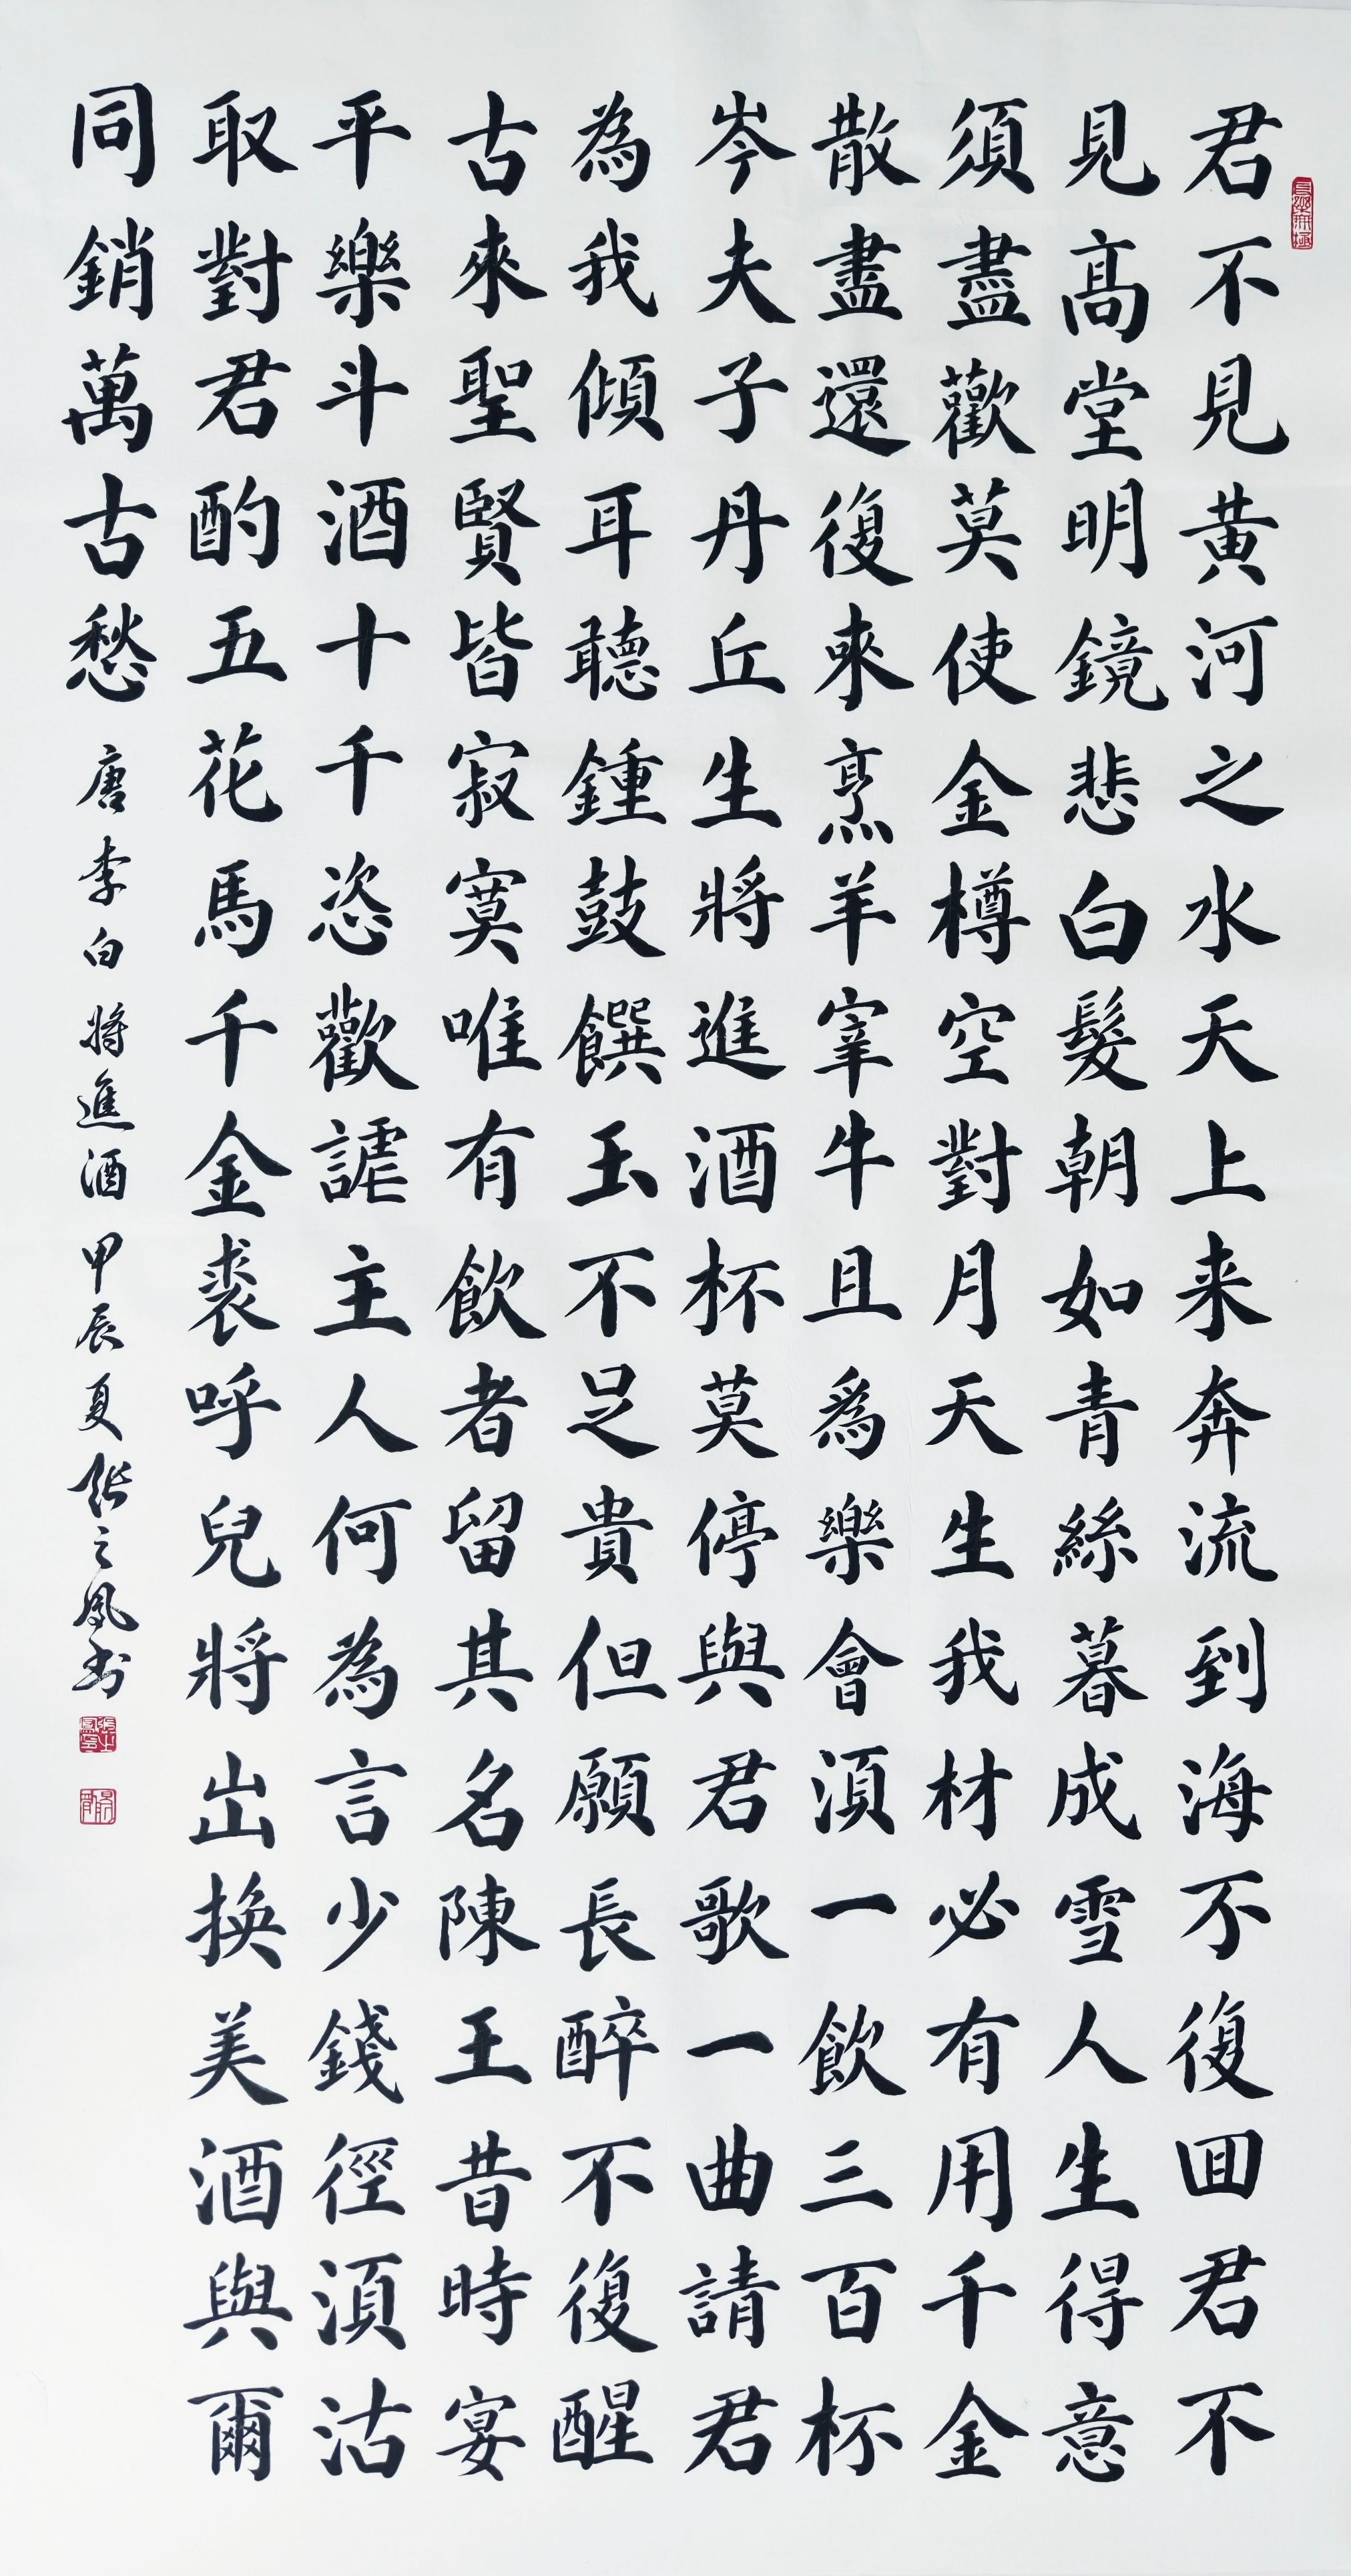 君不見黄河之水天上来奔流到海不復回君不
見高堂明鏡悲白髮朝如青絲暮成雪人生得意
須盡歡莫使金樽空對月天生我材必有用千金
散盡還復來烹羊宰牛且為樂會須一飲三百杯
岑夫子丹丘生將進酒杯莫停與君歌一曲請君
為我傾耳聽鍾鼓饌玉不足貴但願長醉不復醒
古來聖賢皆寂寞唯有飲者留其名陳王昔時宴
平樂斗酒十千恣歡謔主人何為言少錢徑須沽
取對君酌五花馬千金裘呼兒將出換美酒與爾
同銷萬古愁
唐李白將進酒甲辰夏張之鳳書